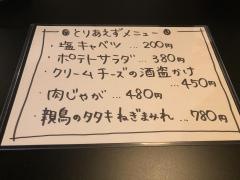 とりあえずメニュー
・塩キャベツ … 200円
・ポテトサラダ … 380円
・クリームチーズの酒盗かけ
… 450円
・肉じゃが … 480円
・親鳥のタタキねぎまみれ … 780円